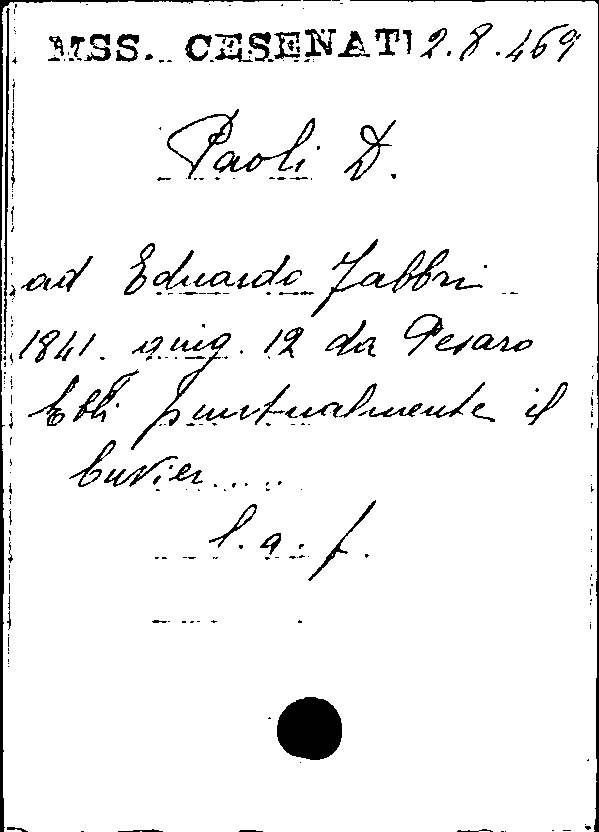 MSS. CESENATI 2.8.469
Paoli D.
ad Eduardo Fabbri
1841. giug. 12 da Pesaro
Ebbi puntualmente il
Cuvier.....
l. a. f.